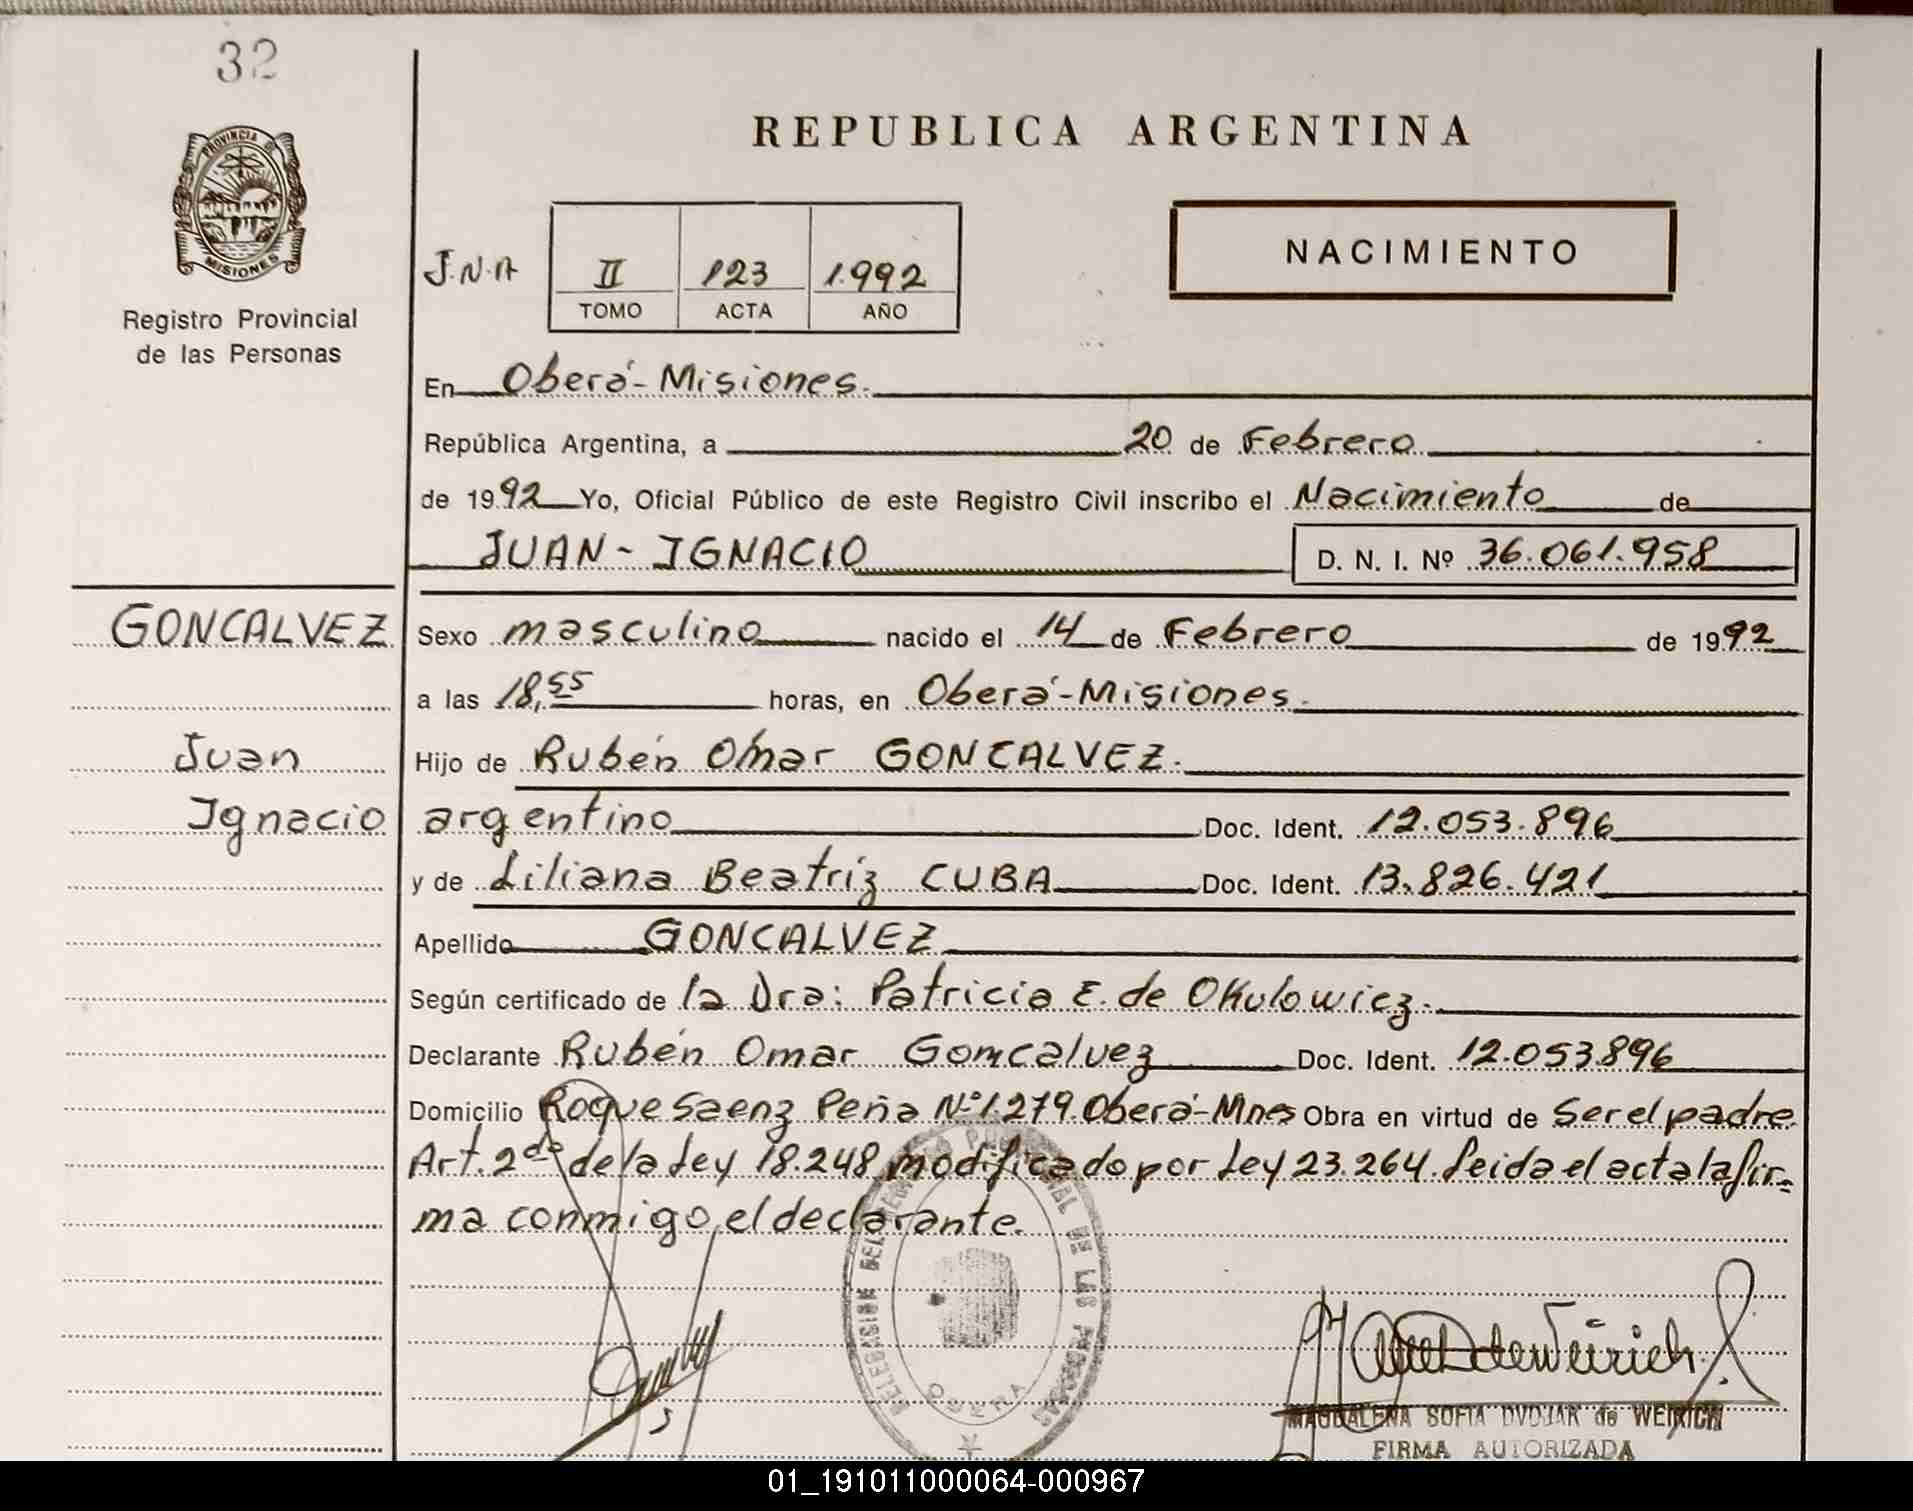 32
PROVINCIA DE
MISIONES
Registro Provincial
de las Personas
REPUBLICA ARGENTINA
NACIMIENTO
J.N.A
II 123 1.992
TOMO ACTA AÑO
En Oberá-Misiones.
República Argentina, a 20 de Febrero
de 1992 Yo, Oficial Público de este Registro Civil inscribo el Nacimiento de
JUAN - IGNACIO D. N. I. Nº 36.061.958
GONCALVEZ
Juan
Ignacio
Sexo masculino nacido el 14 de Febrero de 1992
a las 18,55 horas, en Oberá-Misiones.
Hijo de Rubén Omar GONCALVEZ.
argentino Doc. Ident. 12.053.896
y de Liliana Beatriz CUBA Doc. Ident. 13.826.421
Apellido GONCALVEZ
Según certificado de la Dra: Patricia E. de Okulowiez.
Declarante Rubén Omar Goncalvez Doc. Ident. 12.053.896
Domicilio Roque Saenz Peña Nº 1.279. Oberá-Mnes Obra en virtud de Ser el padre.
Art. 2do de la Ley 18.248 modificado por Ley 23.264. Leida el acta la fir-
ma conmigo, el declarante.
DELEGACION DEL REGISTRO PROVINCIAL DE LAS PERSONAS
OBERA
MAGDALENA SOFIA DVOJAK de WEIRICH
FIRMA AUTORIZADA
01_191011000064-000967